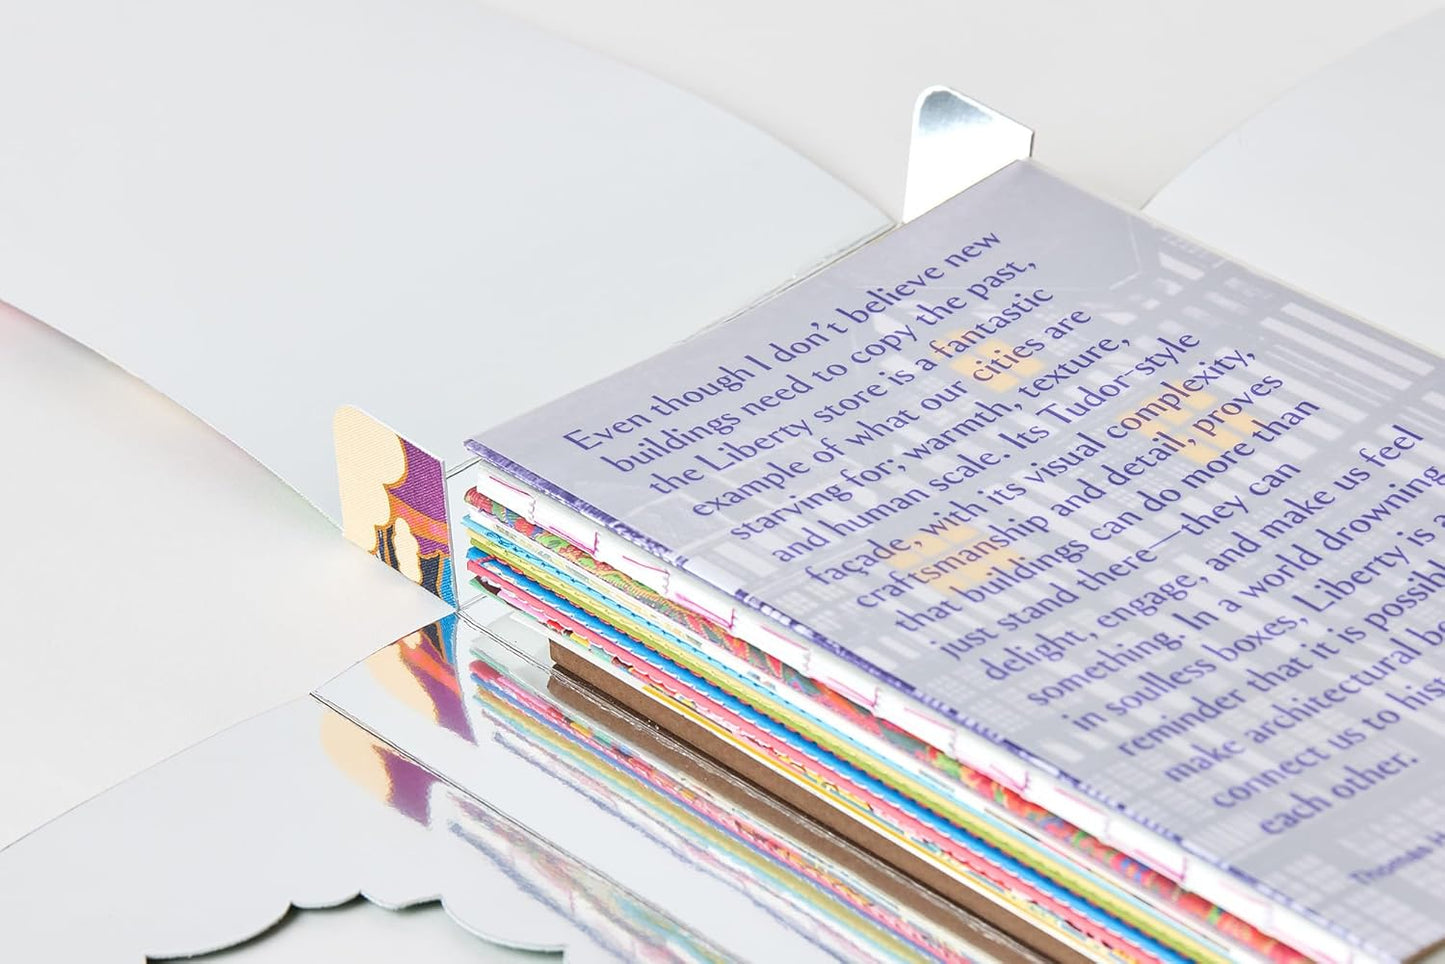 Even though I don't believe new
buildings need to copy the past,
the Liberty store is a fantastic
example of what our cities are
starving for; warmth, texture,
and human scale. Its Tudor-style
façade, with its visual complexity,
craftsmanship and detail, proves
that buildings can do more than
just stand there—they can
delight, engage, and make us feel
something. In a world drowning
in soulless boxes, Liberty is a
reminder that it is
make architectural
connect us to
each other.
Thomas